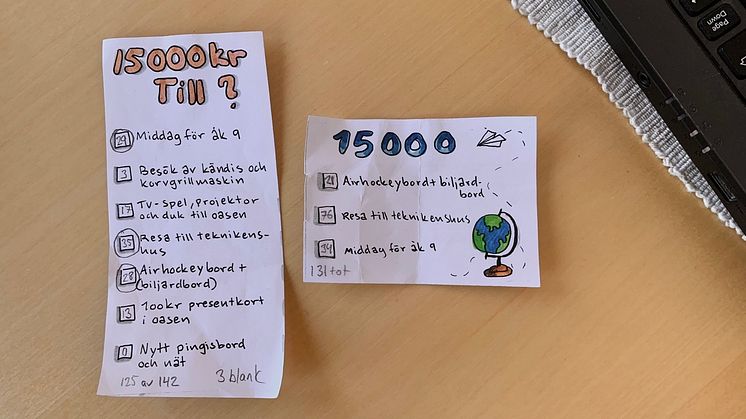 15000kr
Till?
29 Middag för åk 9
3 Besök av kändis och
korvgrillmaskin
17 TV-spel, Projektor
och duk till oasen
35 Resa till teknikens-
hus
28 Airhockeybord +
(biljardbord)
13 100kr presentkort
i oasen
0 Nytt pingisbord
och nät
125 av 142
3 blank
15000
21 Airhockeybord + biljard-
bord
76 Resa till teknikenshus
34 Middag för åk 9
131 tot
Page
Down